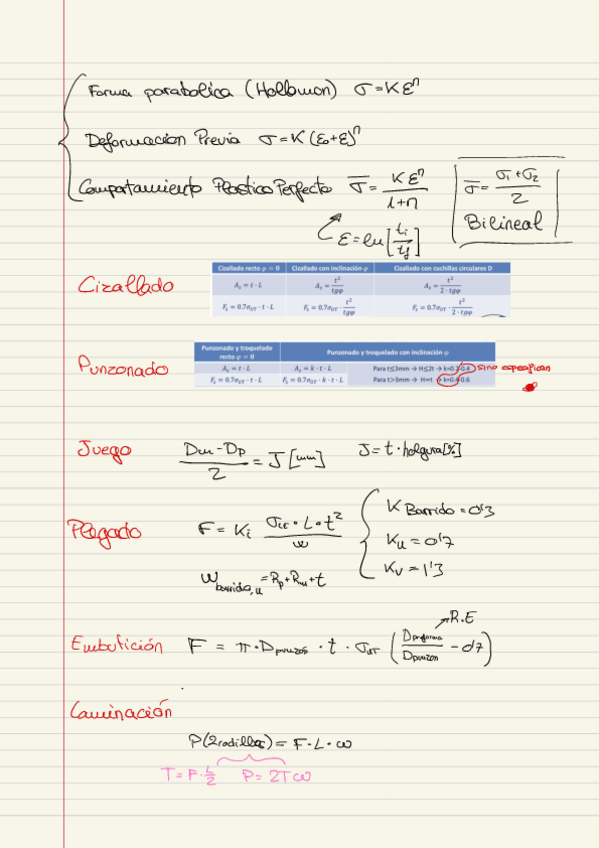 Forma parabolica (Hollomon) σ = K Ɛⁿ
Deformacion Previa σ = K (Ɛ₀+Ɛ)ⁿ
Comportamiento Plastico Perfecto σ̅ = K Ɛⁿ / 1+n
σ̅ = σ₁+σ₂ / 2
Bilineal
Ɛ = ln [ti / tf]
Cizallado
Cizallado recto φ = 0 Cizallado con inclinación φ Cizallado con cuchillas circulares D
A_s = t · L A_s = t² / tgφ A_s = t² / 2 · tgφ
F_s = 0.7σ_UT · t · L F_s = 0.7σ_UT · t² / tgφ F_s = 0.7σ_UT · t² / 2 · tgφ
Punzonado
Punzonado y troquelado recto φ = 0 Punzonado y troquelado con inclinación φ
A_s = t · L A_s = k · t · L Para t≤3mm → H≤2t → k=0.2-0.4
F_s = 0.7σ_UT · t · L F_s = 0.7σ_UT · k · t · L Para t>3mm → H=t → k=0.4-0.6
si no especifican
Juego Dm - Dp / 2 = J [mm] J = t · holgura[%]
Plegado F = Ki σ_UT · L · t² / w
K Barrido = 0'3
Ku = 0'7
Kv = 1'3
W barrido,u = Rp + Rm + t
R.E
Embutición F = π · Dpunzon · t · σ_UT (Dpreforma / Dpunzon - 0'7)
Laminación
P(2 rodillos) = F · L · ω
T = F · L/2 P = 2Tω